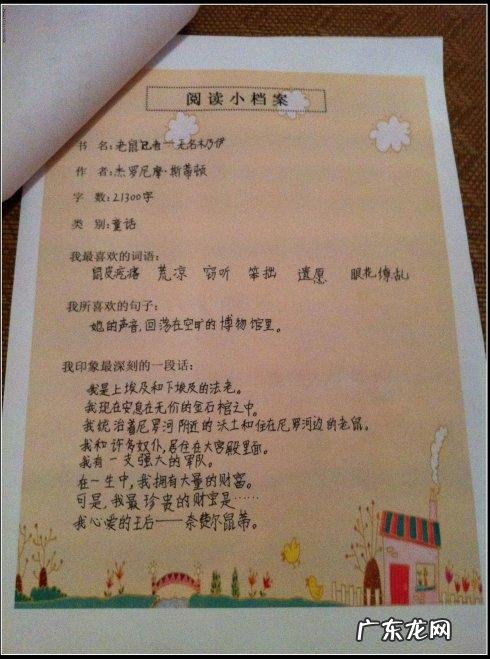 阅读小档案
书 名:老鼠记者一无名木乃伊
作 者:杰罗尼摩·斯蒂顿
字 数:21300字
类 别:童话
我最喜欢的词语:
鼠皮疙瘩 荒凉 窃听 笨拙 遗愿 眼花缭乱
我所喜欢的句子:
她的声音,回荡在空旷的博物馆里。
我印象最深刻的一段话:
我是上埃及和下埃及的法老。
我现在安息在无价的金石棺之中。
我统治着尼罗河附近的沃土和住在尼罗河边的老鼠。
我和许多奴仆,居住在大宫殿里面。
我有一支强大的军队。
在一生中,我拥有大量的财富。
可是,我最珍贵的财宝是……
我心爱的王后——奈倢尔鼠蒂。
广东龙网